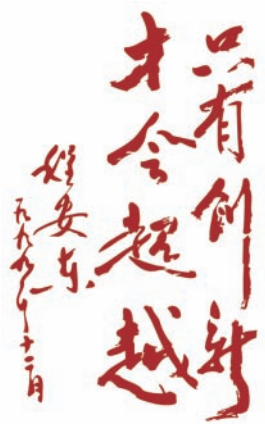 只有创新
才会超越
程安东
一九九九年十二月